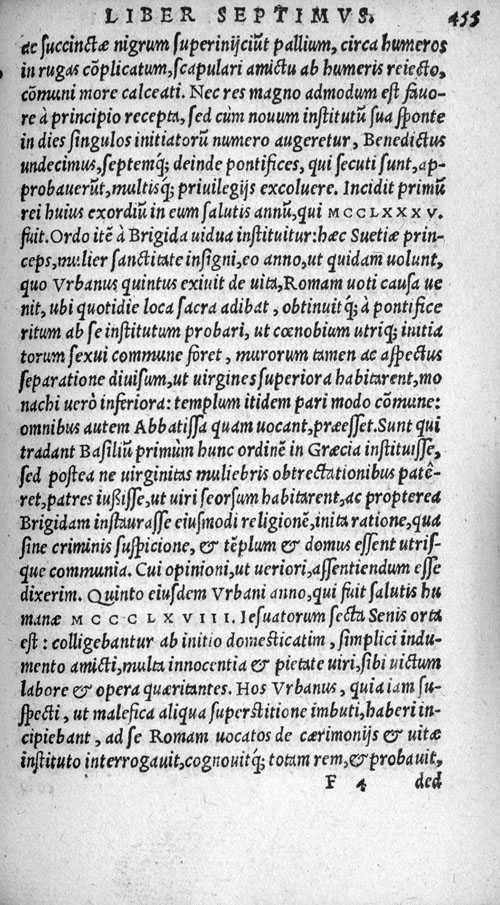 LIBER SEPTIMVS. 455
ac succinctæ nigrum superinijciũt pallium, circa humeros
in rugas cõplicatum, scapulari amictu ab humeris reiecto,
cõmuni more calceati. Nec res magno admodum est fauo-
re à principio recepta, sed cùm nouum institutũ sua sponte
in dies singulos initiatorũ numero augeretur, Benedictus
undecimus, septemq; deinde pontifices, qui secuti sunt, ap-
probauerũt, multisq; priuilegijs excoluere. Incidit primũ
rei huius exordiũ in eum salutis annũ, qui MCCLXXXV.
fuit. Ordo itẽ à Brigida uidua instituitur: hæc Suetiæ prin-
ceps, mulier sanctitate insigni, eo anno, ut quidam uolunt,
quo Vrbanus quintus exiuit de uita, Romam uoti causa ue
nit, ubi quotidie loca sacra adibat, obtinuitq́; à pontifice
ritum ab se institutum probari, ut cœnobium utriq; initia
torum sexui commune foret, murorum tamen ac aspectus
separatione diuisum, ut uirgines superiora habitarent, mo
nachi uerò inferiora: templum itidem pari modo cõmune:
omnibus autem Abbatissa quam uocant, præesset. Sunt qui
tradant Basiliũ primùm hunc ordinẽ in Græcia instituisse,
sed postea ne uirginitas muliebris obtrectationibus patê-
ret, patres iußisse, ut uiri seorsum habitarent, ac propterea
Brigidam instaurasse eiusmodi religionẽ, inita ratione, qua
sine criminis suspicione, & tẽplum & domus essent utris-
que communia. Cui opinioni, ut ueriori, assentiendum esse
dixerim. Quinto eiusdem Vrbani anno, qui fuit salutis hu
manæ MCCCLXVIII. Iesuatorum secta Senis orta
est: colligebantur ab initio domesticatim, simplici indu-
mento amicti, multa innocentia & pietate uiri, sibi uictum
labore & opera quæritantes. Hos Vrbanus, quia iam su-
specti, ut malefica aliqua superstitione imbuti, haberi in-
cipiebant, ad se Romam uocatos de cærimonijs & uitæ
instituto interrogauit, cognouitq́; totam rem, & probauit,
F 4 ded